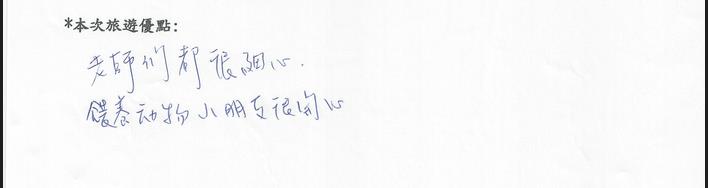 *本次旅遊優點:
老師们都很細心.
餵養动物小朋友很開心